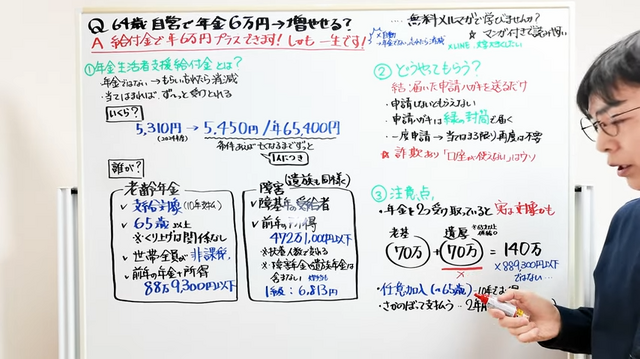 Q 64歳 自営で年金6万円→増やせる?
A 給付金で年6万円プラスできます! しかも一生です!
無料メルマガで学びませんか?
☆マンガ付きで読みやすい
①年金生活者支援給付金とは?
・年金ではない→もらい忘れたら消滅
・当てはまれば、ずっと受けとれる
いくら?
5,310円→5,450円/年65,400円
1人につき
誰が?
老齢年金
✓支給対象(10年支払い)
✓65歳以上
※くり上げは関係なし
✓世帯全員が非課税
✓前年の年金+所得
88万9,300円以下
障害(遺族も同様)
✓障基の受給者
✓前年の所得
472万1,000円以下
※扶養人数で変わる
※障害年金・遺族年金は
含まない
1級:6,813円
②どうやってもらう?
結:届いた申請ハガキを送るだけ
・申請しないともらえない
・申請ハガキは緑の封筒で届く
・一度申請→当てはまる限り再度は不要
☆詐欺あり「口座が使えない」はウソ
③注意点
・年金を2つ受け取っていると実は対象かも
老基 遺厚
70万+70万=140万
×889,300円以下
ではない…
・任意加入(〜65歳)
・さかのぼって支払う…